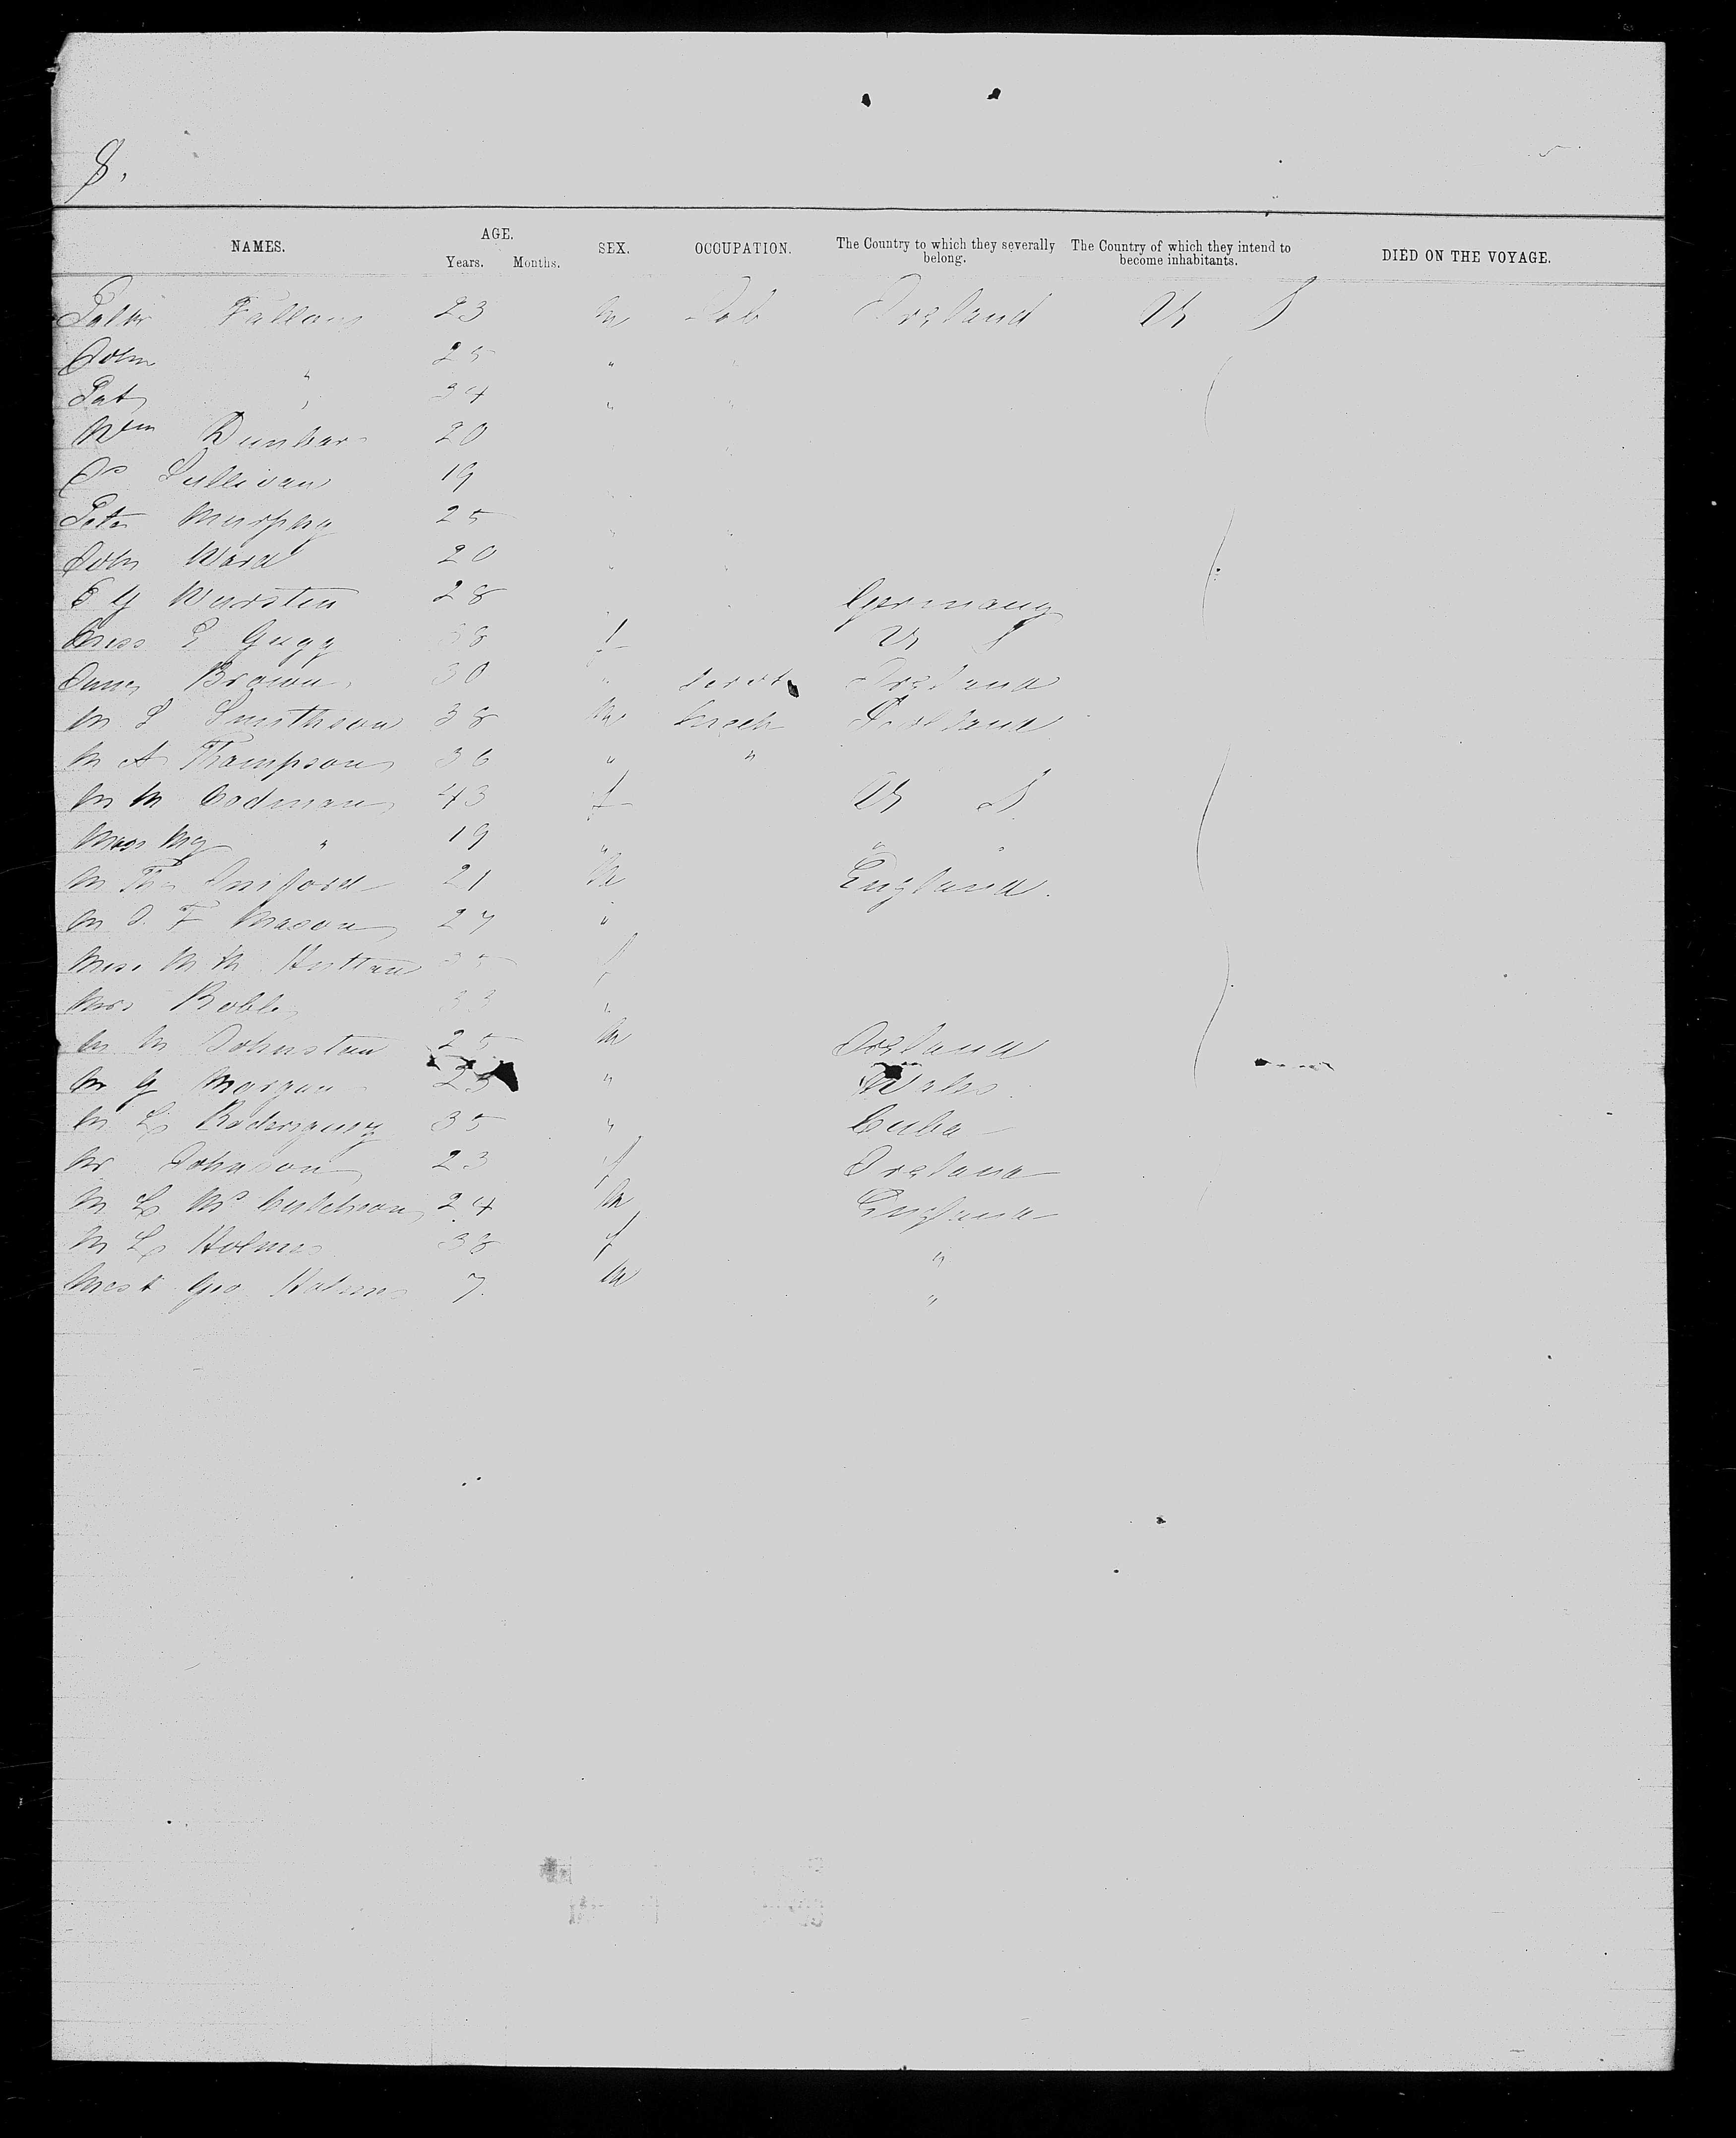 8.
NAMES. AGE. Years. Months. SEX. OCCUPATION. The Country to which they severally belong. The Country of which they intend to become inhabitants. DIED ON THE VOYAGE.
Fallons 23 m Lab Ireland U S
John " 25 "
Pat " 34 "
Wm Dunbar 20
Js Sullivan 19
Peter Murphy 25
John Ward 20
28 Germany
Miss 38 f U S
Brown 30 " Servt Ireland
M S Smithson 38 m Mech Scotland
M A Thompson 36 " "
M M Codman 43 f U S
Miss Mg " 19 " " "
M Thos 21 m England
M J. F Mason 27 "
Miss M M Hutton 35 f
Mrs Roble 33 "
M M Johnston 25 m Ireland
M G Morgan 23 " Wales
M L 35 " Cuba
M Johnson 23 f Ireland
M L Mc Cutcheon 24 m England
M L Holmes 38 f "
Mast Geo Holmes 7 m "